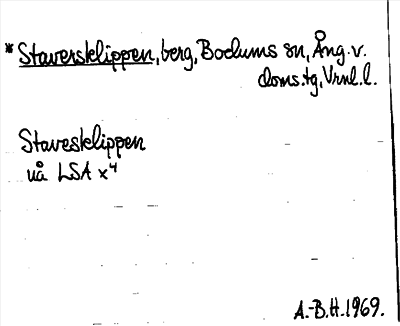 * Staversklippen, berg, Bodums sn, Ång. v.
doms.tg, Vrnl.l.
Stavesklippen
uå LSA x4
A.-B.H. 1969.